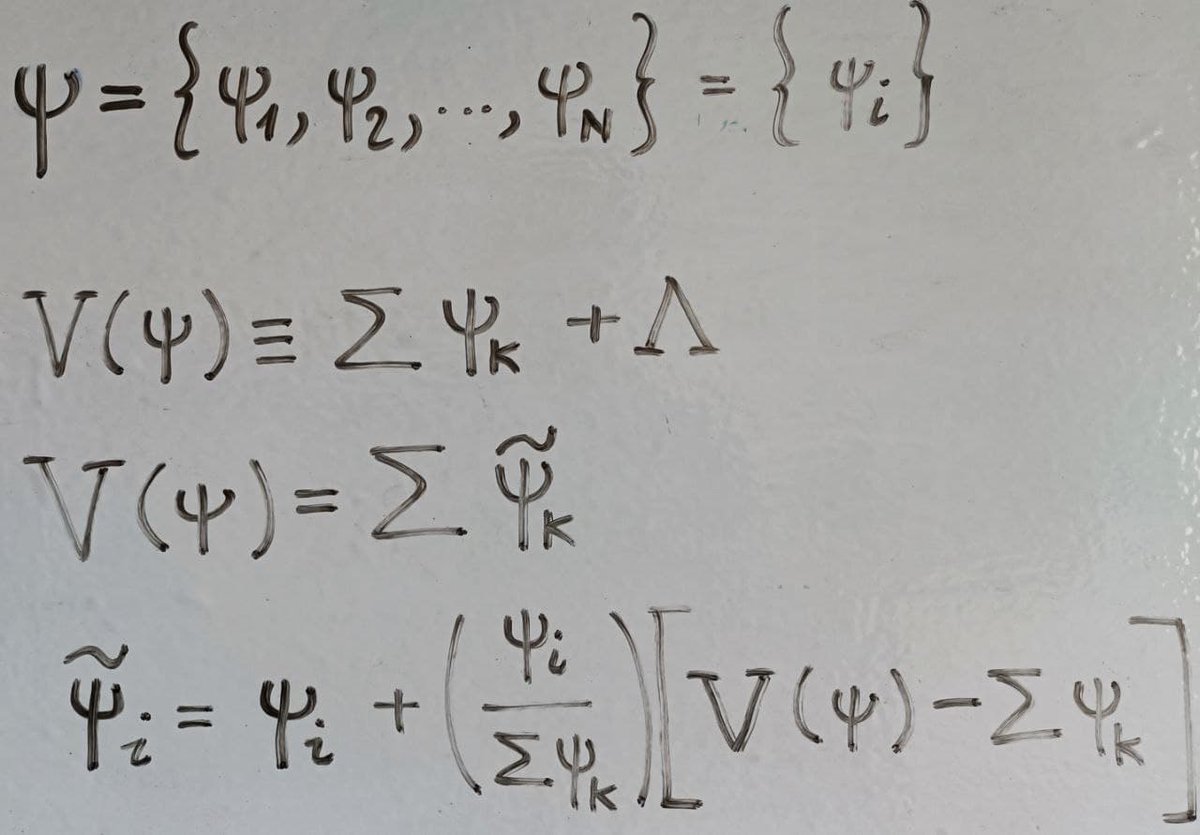 ψ = {ψ₁, ψ₂, ..., ψ_N} = {ψ_i}
V(ψ) ≡ Σ ψ_k + Λ
V(ψ) = Σ ψ̃_k
ψ̃_i = ψ_i + (ψ_i / Σψ_k) [V(ψ) − Σ ψ_k]